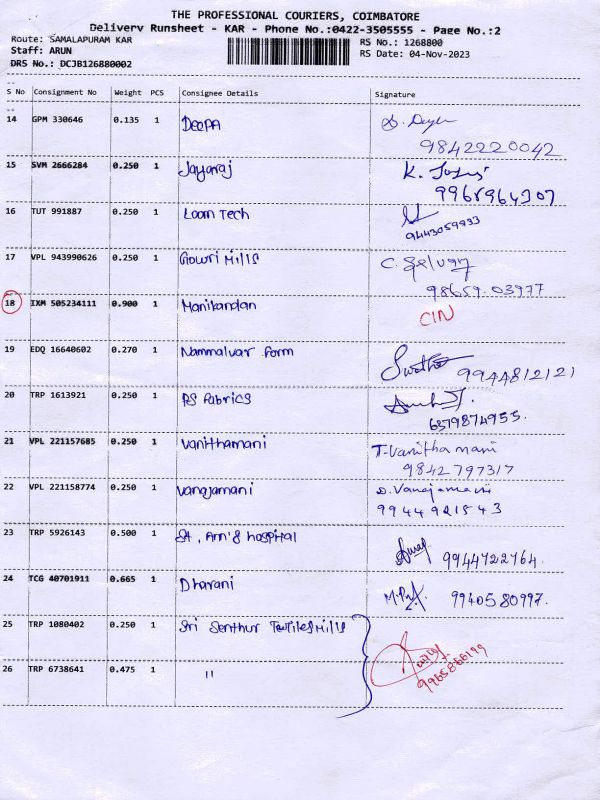 THE PROFESSIONAL COURIERS, COIMBATORE
Delivery Runsheet - KAR - Phone No.:0422-3505555 - Page No.:2
Route: SAMALAPURAM KAR RS No.: 1268800
Staff: ARUN RS Date: 04-Nov-2023
DRS No.: DCJB126880002
S No Consignment No Weight PCS Consignee Details Signature
14 GPM 330646 0.135 1 Deepa
9842220042
15 SVM 2666284 0.250 1 Jayaraj K.
9965964307
16 TUT 991887 0.250 1 Loom Tech
9443059933
17 VPL 943990626 0.250 1 Gowri Mills C. Selvaraj
98659.03977
18 IXM 505234111 0.900 1 Manikandan CIN
19 EDQ 16640602 0.270 1 Nammalvar Form
9944812121
20 TRP 1613921 0.250 1 RS Fabrics
6379874955.
21 VPL 221157685 0.250 1 Vanithamani T. Vanithamani
9842797317
22 VPL 221158774 0.250 1 Vanajamani D. Vanajamani
9944921543
23 TRP 5926143 0.500 1 St, Ann's hospital
9944722764.
24 TCG 40701911 0.665 1 Dharani 9940580997.
25 TRP 1080402 0.250 1 Sri Senthur Textiles Mills
26 TRP 6738641 0.475 1 "
9965866199